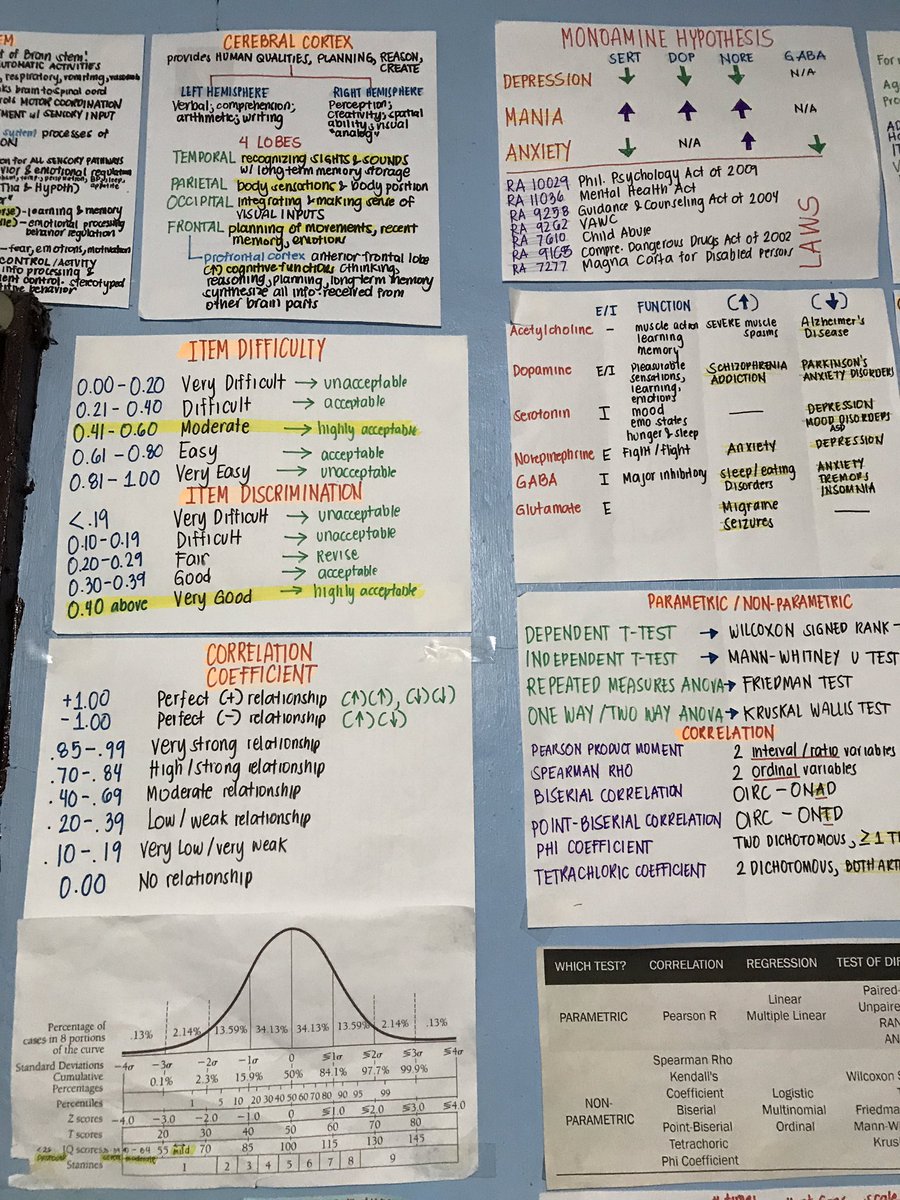 EM
t of Brain stem'
AUTOMATIC ACTIVITIES
respiratory, vomiting,
ks brain to spinal cord
rols MOTOR COORDINATION
MENT w/ SENSORY INPUT
system processes of
ON
on for ALL SENSORY PATHWAYS
vior & emotional regulation
Tha & Hypoth)
rse)-learning & memory
le)-emotional processing
behavior regulation
-fear, emotions, motivation
CONTROL/ACTIVITY
info processing &
ent control- stereotyped
behavior
CEREBRAL CORTEX
provides HUMAN QUALITIES, PLANNING, REASON,
CREATE
LEFT HEMISPHERE
Verbal; comprehension;
arithmetic; writing
RIGHT HEMISPHERE
Perception;
creativity; spatial
ability; visual
"analog"
4 LOBES
TEMPORAL recognizing SIGHTS & SOUNDS
w/ long term memory storage
PARIETAL body sensations & body position
OCCIPITAL integrating & making sense of
VISUAL INPUTS
FRONTAL planning of movements, recent
memory, emotions
profrontal cortex anterior frontal lobe
(↑) cognitive functions (thinking,
reasoning, planning, long term memory
synthesize all info received from
other brain parts
MONOAMINE HYPOTHESIS
SERT DOP NORE GABA
DEPRESSION ↓ ↓ ↓ N/A
MANIA ↑ ↑ ↑ N/A
ANXIETY ↓ N/A ↑ ↓
RA 10029 Phil. Psychology Act of 2009
RA 11036 Mental Health Act
RA 9258 Guidance & Counseling Act of 2004
RA 9262 VAWC
RA 7610 Child Abuse
RA 9165 Compre. Dangerous Drugs Act of 2002
RA 7277 Magna Carta for Disabled Person
LAWS
E/I FUNCTION (↑) (↓)
Acetylcholine - muscle action learning memory SEVERE muscle spasms Alzheimer's Disease
Dopamine E/I Pleasurable sensations, learning, emotions SCHIZOPHRENIA ADDICTION PARKINSON'S ANXIETY DISORDERS
Serotonin I mood emo states hunger & sleep — DEPRESSION MOOD DISORDERS ASD
Norepinephrine E Fight/flight Anxiety DEPRESSION
GABA I Major inhibitory sleep/eating Disorders ANXIETY TREMORS INSOMNIA
Glutamate E Migraine Seizures —
ITEM DIFFICULTY
0.00-0.20 Very Difficult → unacceptable
0.21-0.40 Difficult → acceptable
0.41-0.60 Moderate → highly acceptable
0.61-0.80 Easy → acceptable
0.81-1.00 Very Easy → unacceptable
ITEM DISCRIMINATION
<.19 Very Difficult → unacceptable
0.10-0.19 Difficult → unacceptable
0.20-0.29 Fair → Revise
0.30-0.39 Good → acceptable
0.40 above Very Good → highly acceptable
CORRELATION
COEFFICIENT
+1.00 Perfect (+) relationship (↑)(↑), (↓)(↓)
-1.00 Perfect (-) relationship (↑)(↓)
.85-.99 Very strong relationship
.70-.84 High/strong relationship
.40-.69 Moderate relationship
.20-.39 Low/weak relationship
.10-.19 Very low/very weak
0.00 No relationship
PARAMETRIC / NON-PARAMETRIC
DEPENDENT T-TEST → WILCOXON SIGNED RANK-
INDEPENDENT T-TEST → MANN-WHITNEY U TEST
REPEATED MEASURES ANOVA → FRIEDMAN TEST
ONE WAY/TWO WAY ANOVA → KRUSKAL WALLIS TEST
CORRELATION
PEARSON PRODUCT MOMENT 2 interval/ratio variables
SPEARMAN RHO 2 ordinal variables
BISERIAL CORRELATION OIRC-ONAD
POINT-BISERIAL CORRELATION OIRC-ONTD
PHI COEFFICIENT TWO DICHOTOMOUS, ≥1 T
TETRACHLORIC COEFFICIENT 2 DICHOTOMOUS, BOTH ART
Percentage of
cases in 8 portions
of the curve
.13% 2.14% 13.59% 34.13% 34.13% 13.59% 2.14% .13%
Standard Deviations -4σ -3σ -2σ -1σ 0 ≤1σ ≤2σ ≤3σ ≤4σ
Cumulative
Percentages 0.1% 2.3% 15.9% 50% 84.1% 97.7% 99.9%
Percentiles 1 5 10 20 30 40 50 60 70 80 90 95 99
Z scores -4.0 -3.0 -2.0 -1.0 0 ≤1.0 ≤2.0 ≤3.0 ≤4.0
T scores 20 30 40 50 60 70 80
IQ scores 55 mild 70 85 100 115 130 145
Stannes 1 2 3 4 5 6 7 8 9
WHICH TEST? CORRELATION REGRESSION TEST OF DI
PARAMETRIC Pearson R
Linear
Multiple Linear
Paired-
Unpaire
RAN
AN
NON-
PARAMETRIC
Spearman Rho
Kendall's
Coefficient
Biserial
Point-Biserial
Tetrachoric
Phi Coefficient
Logistic
Multinomial
Ordinal
Wilcoxon S
T
Friedma
Mann-W
Krus